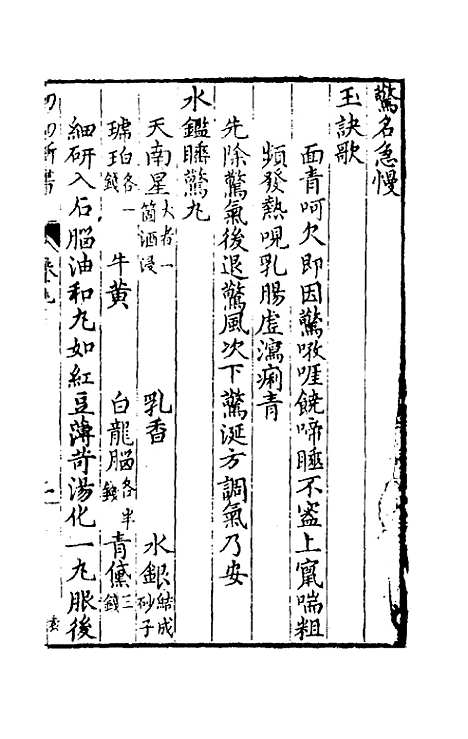 驚名急慢
玉訣歌
面青呵欠即因驚啾啀饒啼睡不𥁞上竄喘粗
頻發熱哯乳腸虛瀉痢青
先除驚氣後退驚風次下驚涎方調氣乃安
水鑑睡驚丸
天南星大者一箇酒浸 乳香 水銀結成砂子
琥珀各一錢 牛黄 白龍腦各半錢 青黛三錢
細研入石腦油和丸如紅豆薄苛湯化一丸服後